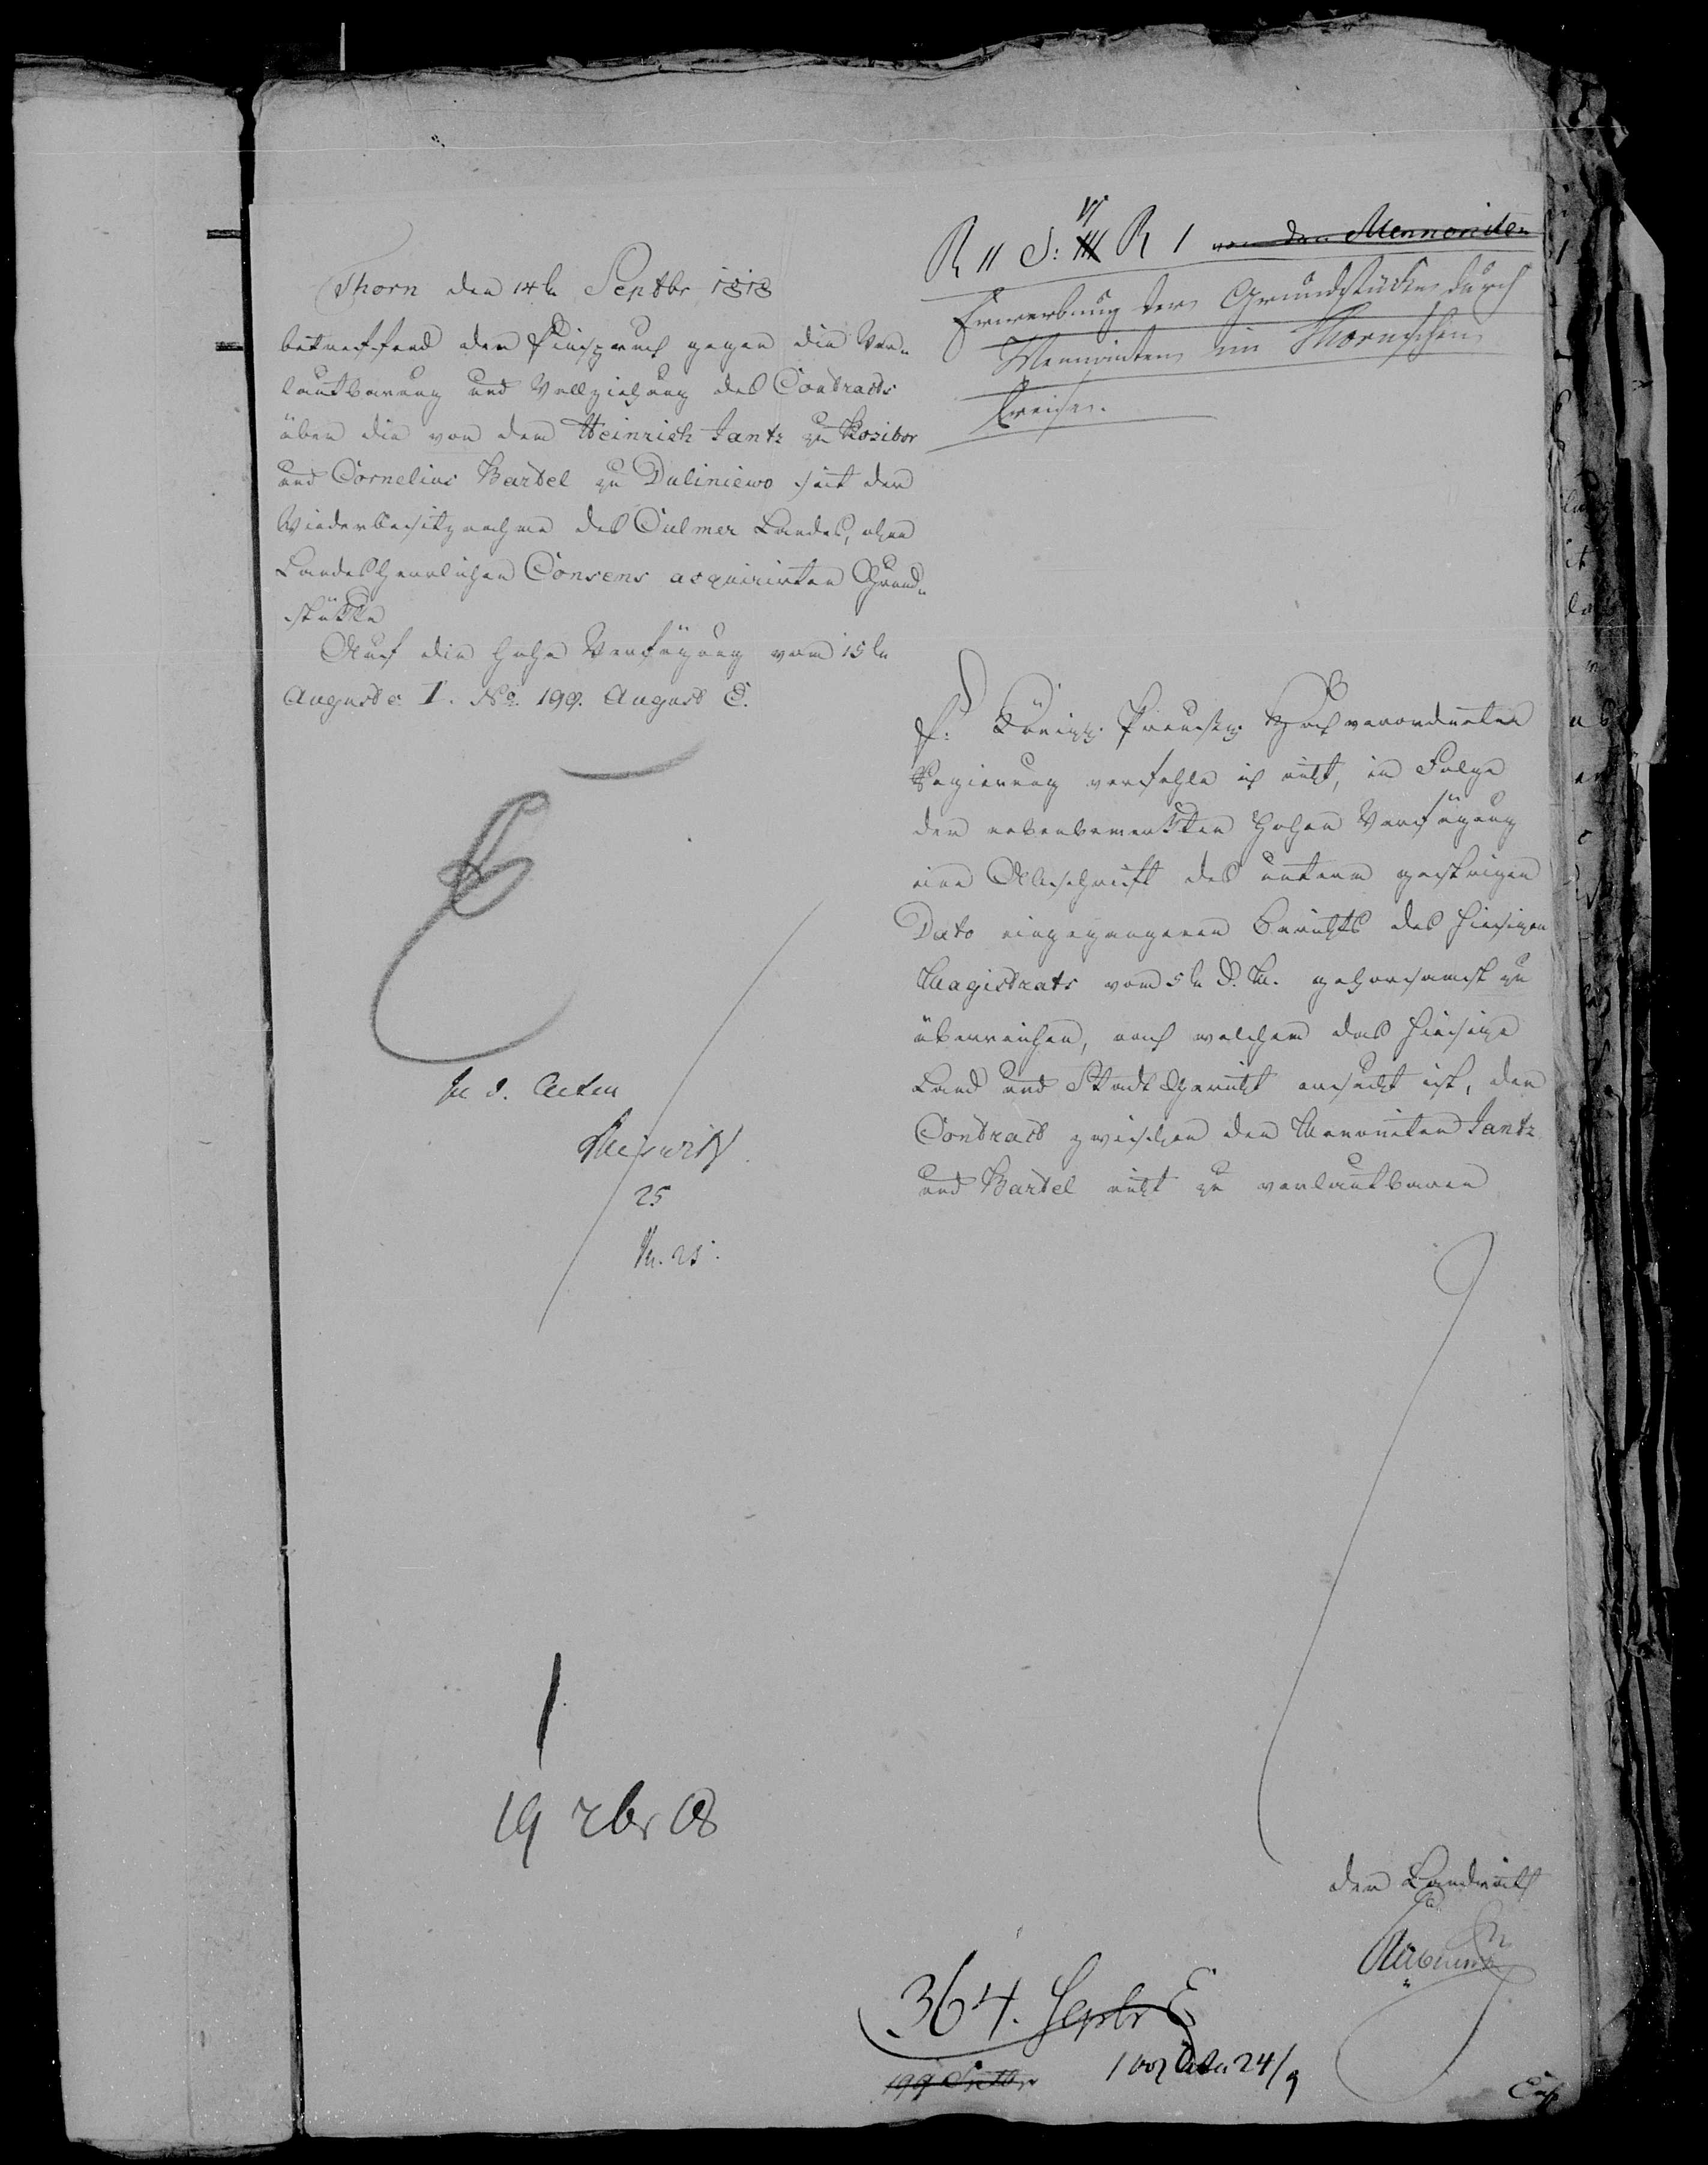 R II S: VI R 1 von den Mennoniten
Erwerbung der Grundstücke durch
Mennoniten im Thornschen
Kreise.
Thorn den 14 tn Septbr 1818
betreffend den Einspruch gegen die Ver-
lautbarung und Vollziehung des Contracts
über die von dem Heinrich Jantz zu Kosibor
und Cornelius Bartel zu Duliniewo seit der
Wiederbesitznahme des Culmer Landes, ohne
Landesherrlichen Consens acquirirten Grund-
stükke
Auf die hohe Verfügung vom 15 tn
August c. I. No. 199. August E.
Königl. Preuß. Hochverordneten
Regierung verfehle ich nicht, in Folge
der nebenbemerkten hohen Verfügung
eine Abschrift des unterm gestrigen
Dato eingegangenen Berichts des hiesigen
Magistrats vom 5 tn d. M. gehorsamst zu
überreichen, nach welchem das hiesige
Land und Stadt Gericht ersucht ist, den
Contract zwischen den Menoniten Jantz
und Bartel nicht zu verlautbaren
Zu d. Acten
25
M. 25.
19 7br 18
der Landrath
364. Septr E
24/9